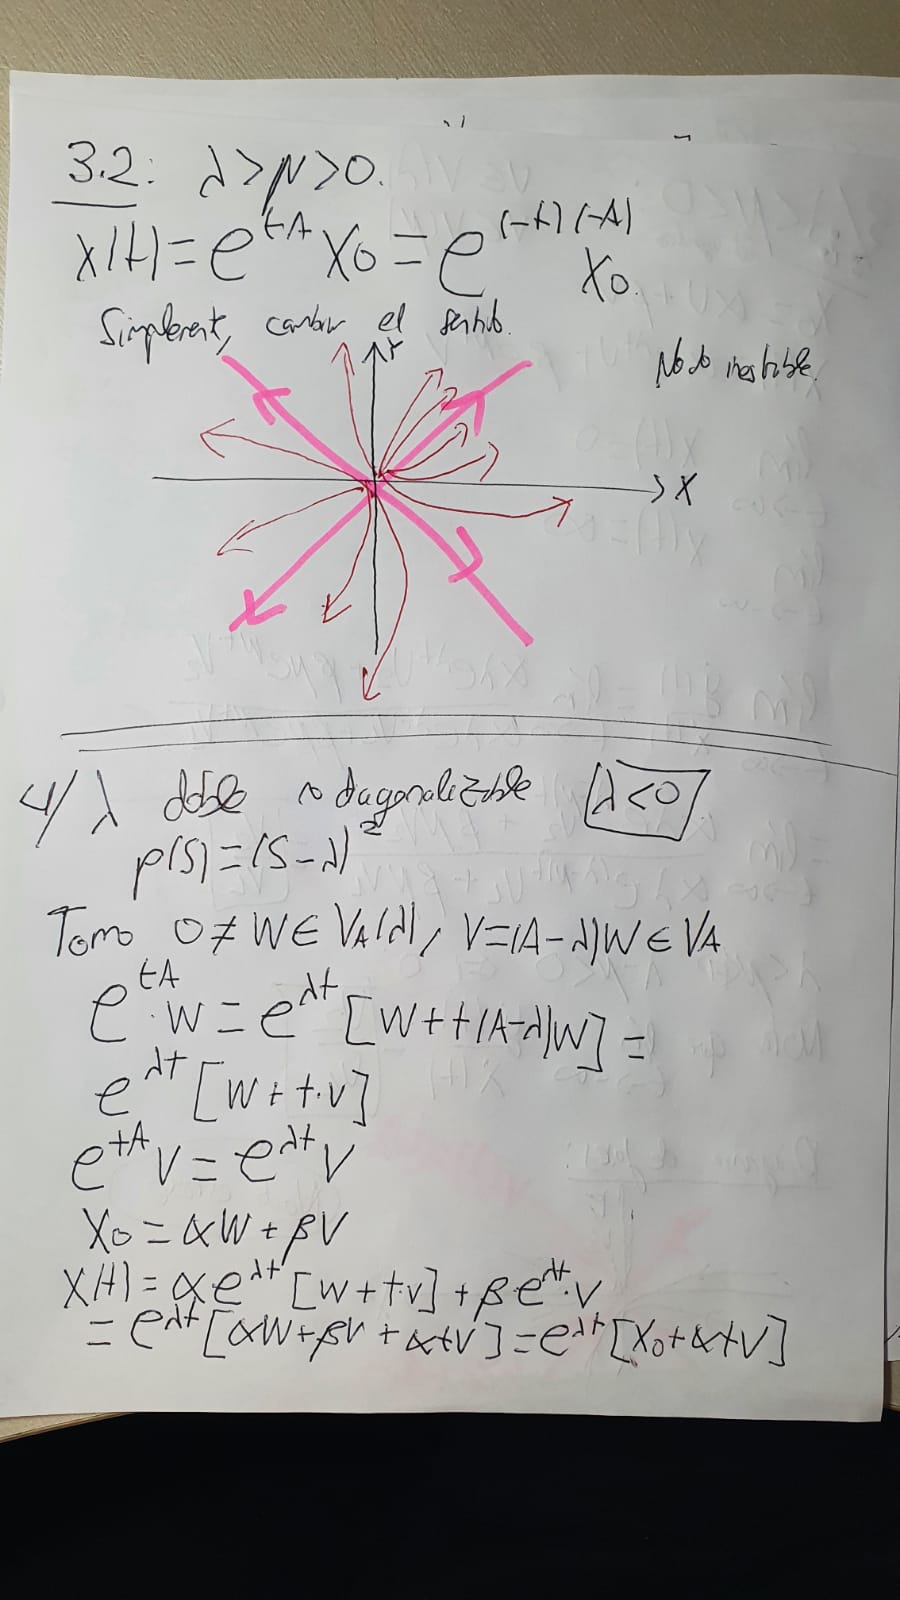 3.2: λ>μ>0.
x(t)=e^{tA} x₀ = e^{(-t)(-A)} x₀.
Simplement, cambiar el sentido.
Nodo inestable.
Y
X
4/ λ doble no diagonalizable λ<0
p(s)=(s-λ)²
Tomo 0≠w∈V_A(λ), v=(A-λ)w∈V_A
e^{tA}·w=e^{λt}[w+t(A-λ)w]=
e^{λt}[w+t·v]
e^{tA}v=e^{λt}v
x₀=αw+βv
x(t)=αe^{λt}[w+t·v]+βe^{λt}·v
=e^{λt}[αw+βv+αtv]=e^{λt}[x₀+αtv]